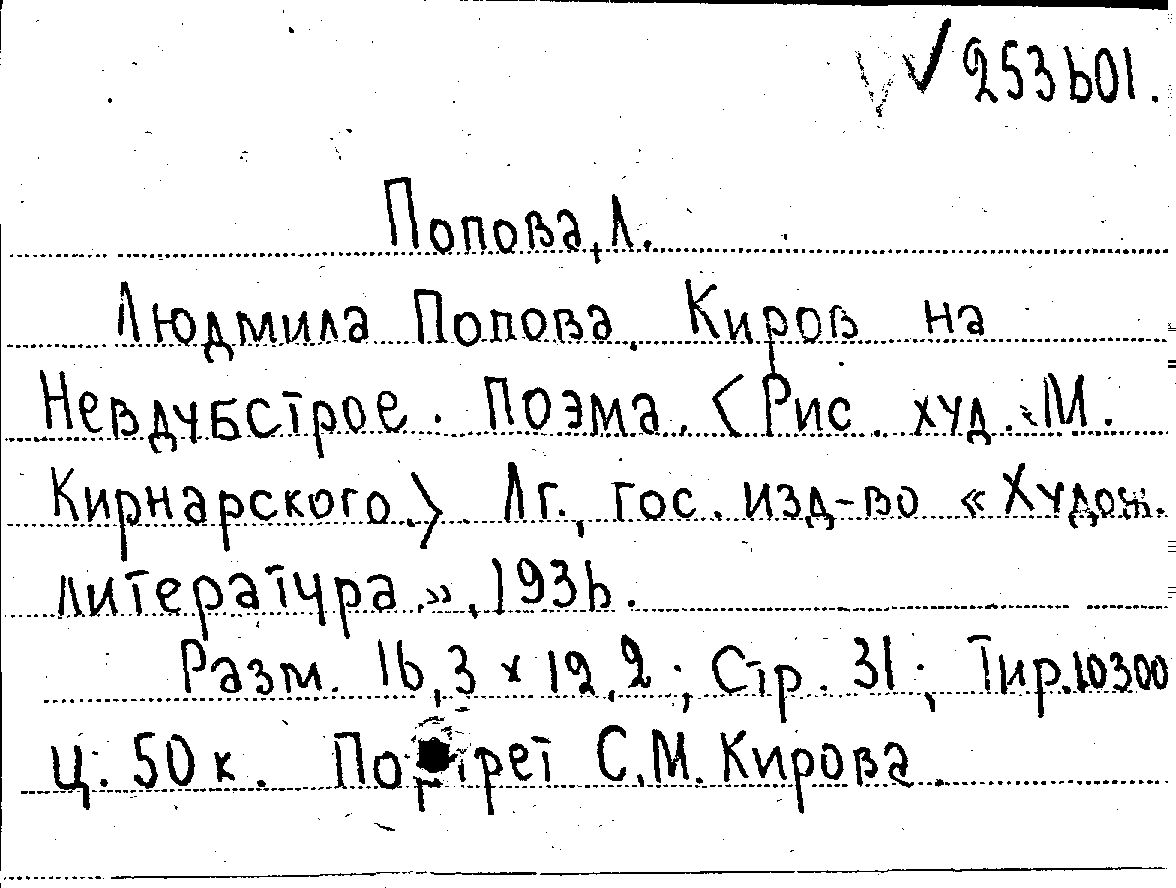 253601.
Попова, Л.
Людмила Попова. Киров на
Невдубстрое. Поэма. <Рис. худ. М.
Кирнарского.> Лг., гос. изд-во «Худож.
литература», 1936.
Разм. 16,3 × 12,2; Стр. 31; Тир. 10300
Ц. 50 к. Портрет С.М. Кирова.